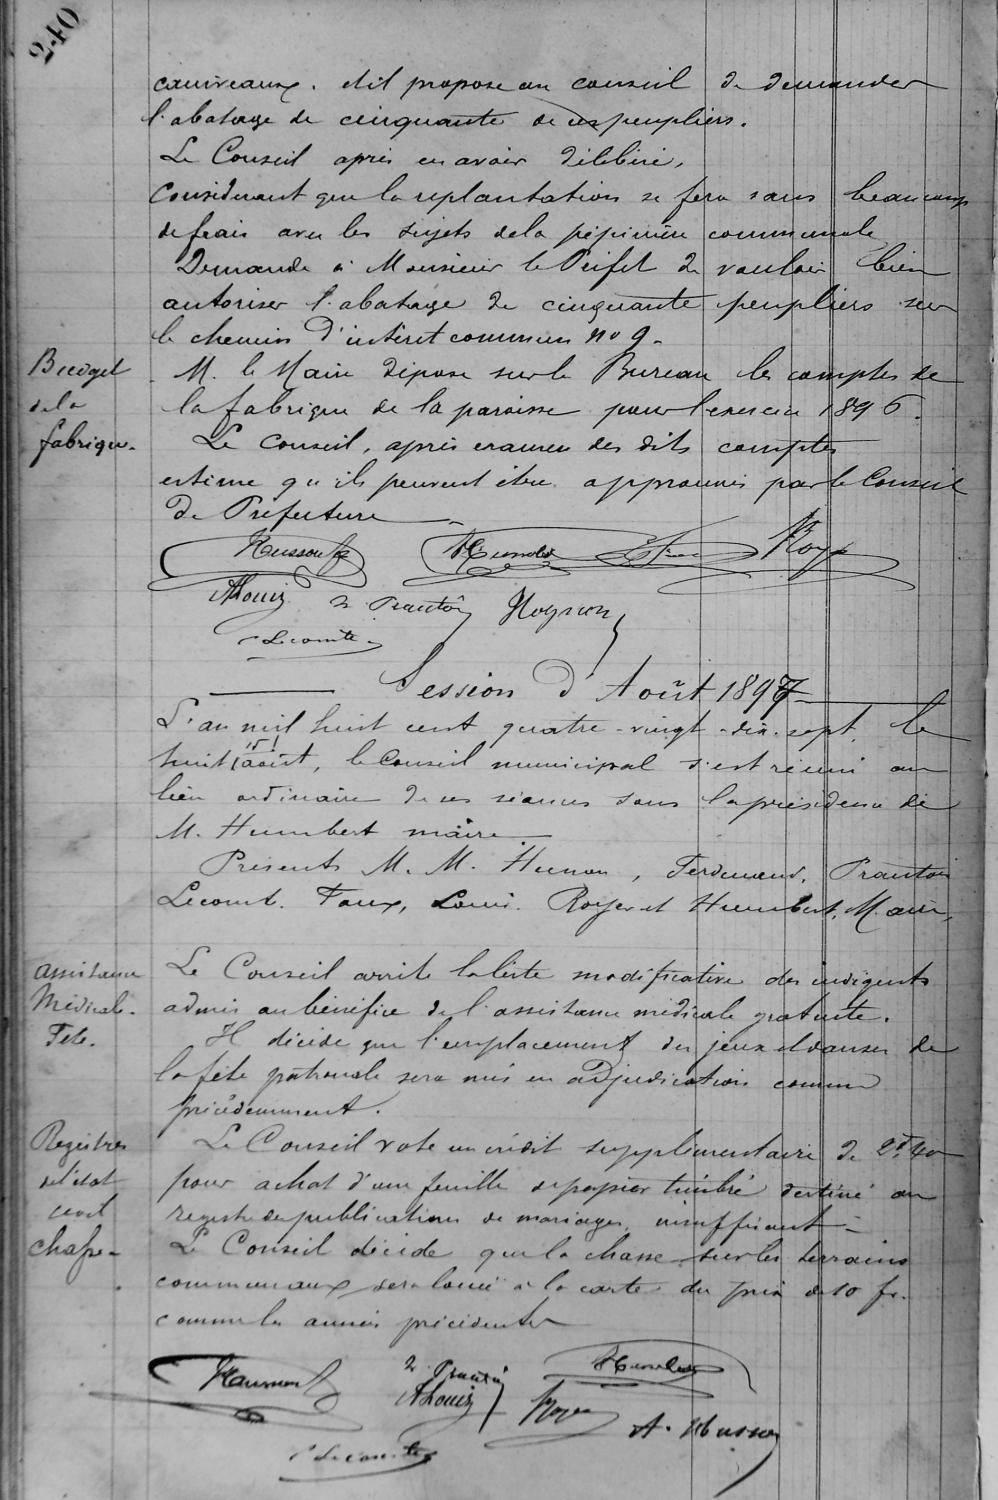 240
caniveaux. et il propose au conseil de demander
l'abatage de cinquante de ces peupliers.
Le Conseil après en avoir délibéré,
Considérant que la replantation se fera sans beaucoup
de frais avec les sujets de la pépinière communale
Demande à Monsieur le Préfet de vouloir bien
autoriser l'abatage de cinquante peupliers sur
le chemin d'intérêt commun no 9.
Budget
de la
fabrique.
M. le Maire dépose sur le Bureau les comptes de
la fabrique de la paroisse pour l'exercice 1896.
Le Conseil, après examen des dits comptes
estime qu'ils peuvent être approuvés par le Conseil
de Préfecture
Royer
Alouis
Prantois
Lecomte
Session d'Août 1897
L'an mil huit cent quatre-vingt-dix-sept, le
huit août, le Conseil municipal s'est réuni au
lieu ordinaire de ses séances sous la présidence de
M. Humbert maire
Présents M. M. Ferdinand, Prantois
Lecomte. Faux, Louis. Royer et Humbert, Maire,
assistance
Médicale.
Fête.
Le Conseil arrête la liste modificative des indigents
admis au bénéfice de l'assistance médicale gratuite.
Il décide que l'emplacement des jeux et danses de
la fête patronale sera mis en adjudication comme
précédemment.
Registres
de l'état
civil
Le Conseil vote un crédit supplémentaire de 2f.40
pour achat d'une feuille de papier timbré destiné au
registre des publications de mariages, insuffisant
chasse
Le Conseil décide que la chasse sur les terrains
communaux sera louée à la carte du prix de 10 fr.
comme les années précédentes
Prantois
Alouis
Royer
Lecomte